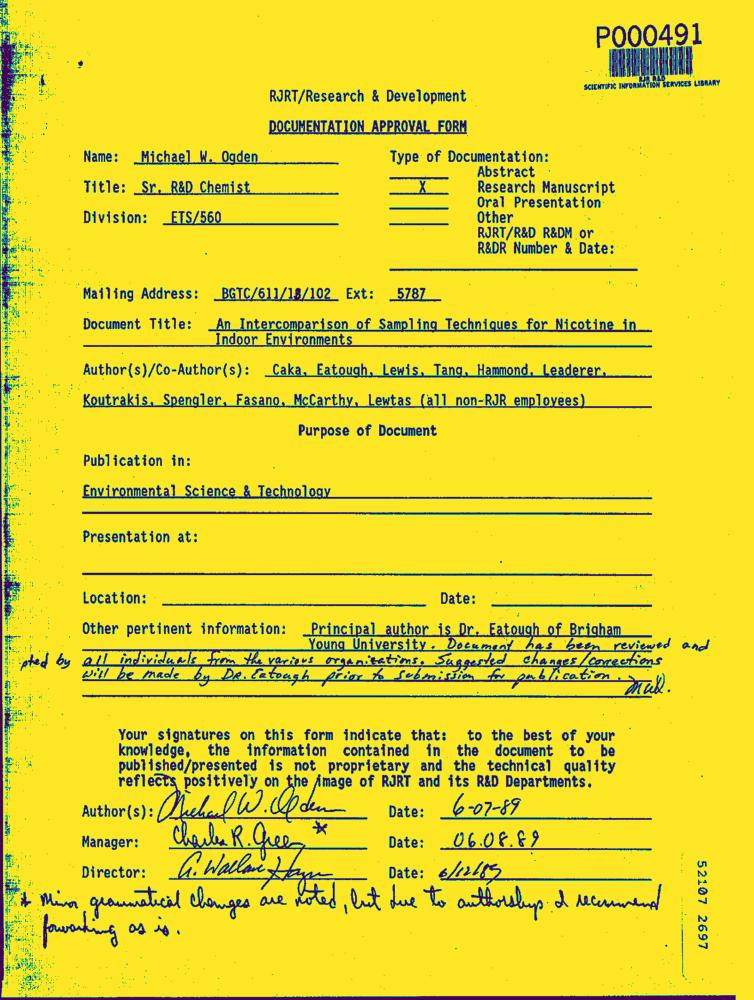 P000491
RJR R&D
SCIENTIFIC INFORMATION SERVICES LIBRARY
RJRT/Research & Development
DOCUMENTATION APPROVAL FORM
Name: Michael W. Ogden
Type of Documentation:
Abstract
Title: Sr. R&D Chemist
X Research Manuscript
Oral Presentation
Division: ETS/560
Other
RJRT/R&D R&DM or
R&DR Number & Date:
Mailing Address: BGTC/611/13/102 Ext: 5787
Document Title: An Intercomparison of Sampling Techniques for Nicotine in
Indoor Environments
Author(s)/Co-Author(s): Caka, Eatough, Lewis, Tang, Hammond, Leaderer,
Koutrakis, Spengler, Fasano, McCarthy, Lewtas (all non-RJR employees)
Purpose of Document
Publication in:
Environmental Science & Technology
Presentation at:
Location:
Date:
Other pertinent information: Principal author is Dr. Eatough of Brigham
Young University. Document has been reviewed and
pted by all individuals from the various organizations. Suggested changes/corrections
will be made by DR. Eatough prior to submission for publication.
Your signatures on this form indicate that: to the best of your
knowledge, the information contained in the document to be
published/presented is not proprietary and the technical quality
reflects positively on the image of RJRT and its R&D Departments.
Author(s): Michael W. Ogden Date: 6-07-89
Manager: Charles R. Green * Date: 06.08.89
Director: G. Wallace Hayes Date: 6/12/89
* Minor grammatical changes are noted, but due to authorships I recommend
forwarding as is.
52107 2697